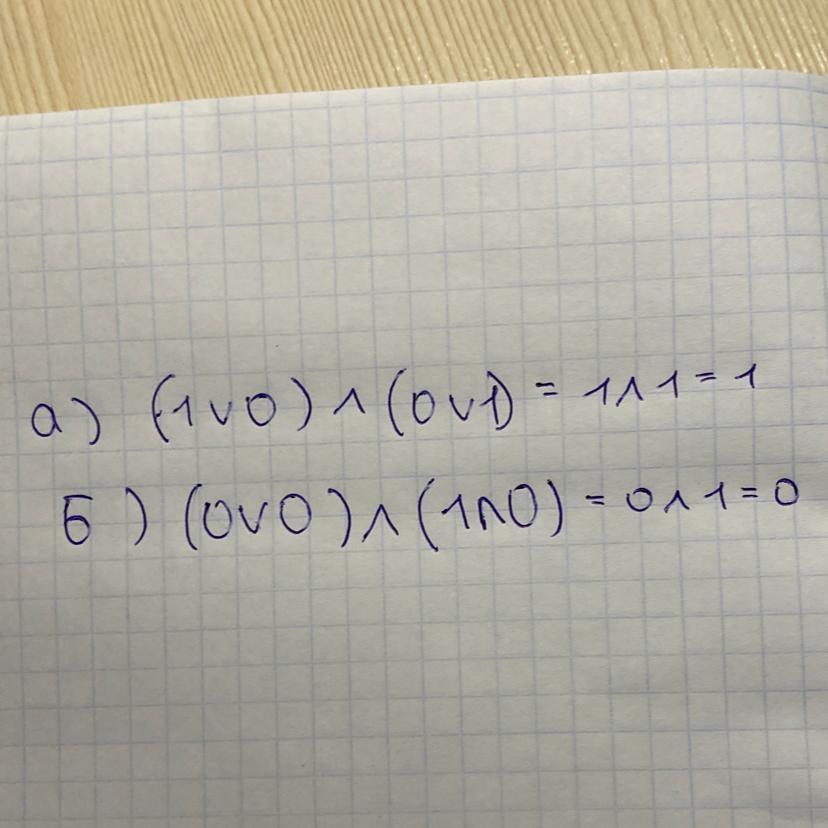 а) (1∨0)∧(0∨1) = 1∧1=1
Б) (0∨0)∧(1∧0) = 0∧1=0